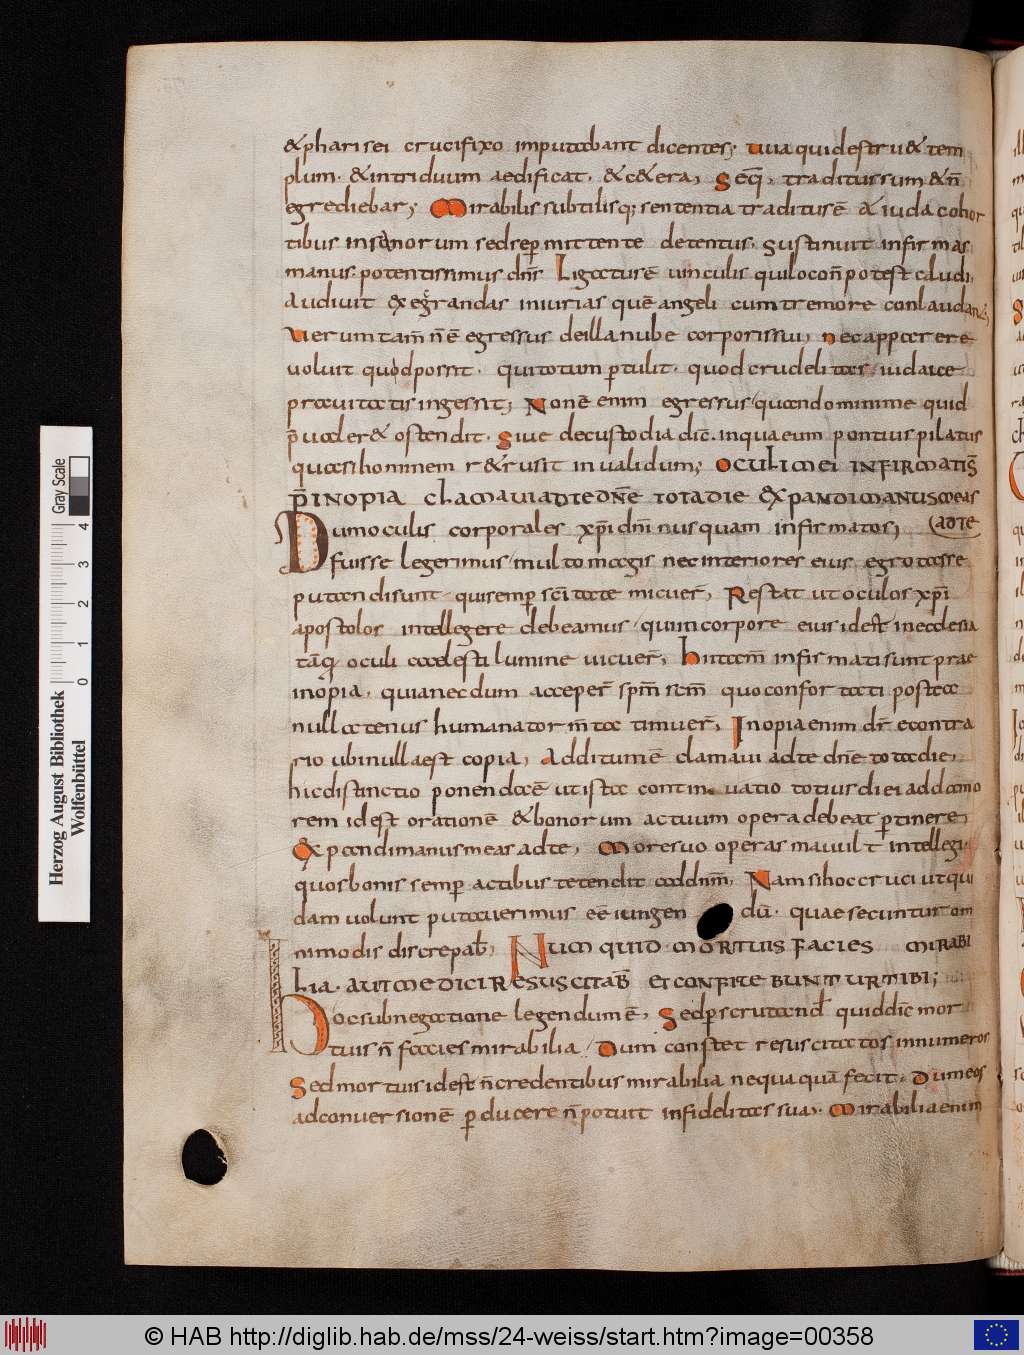 & pharisei crucifixo imputabant dicentes; uua qui destru& tem
plum · & in triduum aedificat · & c&era, Seq̄, traditus sum & n̄
egrediebar; Mirabilis subtilisq; sententia traditus ē a iuda cohor
tibus insanorum sed se ꝑmittente detentus, sustinuit infirmas
manus · potentissimus dn̄s Ligatus ē uinculis qui loco n̄ potest claudi,
Audiuit & grandas iniurias quē angeli cum tremore conlaudan
uerum tam̄ n̄ ē egressus de illa nube corporis sui, nec apparere
uoluit quod possit · qui totum ꝑtulit · quod crudelitas iudaice
prauitatis ingessit; Non ē enim egressus / quando minime quid
p̄ualer& ostendit · Siue de custodia dic̄ · in qua eum pontius pilatus
quasi hominem r&rusit inualidum; OCULI MEI INFIRMATI S̄
P̄ INOPIA CLAMAVI AD TE DN̄E TOTA DIE EXPANDI MANUS MEAS
Dum oculus corporales xp̄i dn̄i nusquam infirmatos, (AD TE
fuisse legerimus / multo magis nec interiores eius egrotasse
putandi sunt · qui semꝑ sc̄i tate micuer̄, Restat ut oculos xp̄i
apostolos intellegere debeamus / qui in corpore eius id est in ecclesia
tāq; oculi caelesti lumine uicuer̄, hii tam̄ infirmati sunt prae
inopia, quia necdum acceper̄ sp̄m sc̄m quo confortati postea
nullatenus humana torm̄ta timuer̄, Inopia enim dr̄ e contra
rio ubi nulla est copia, Additum ē clamaui ad te dn̄e tota die,
hic distinctio ponenda ē ut ista continuatio totius diei ad clamo
rem id est orationē & bonorum actuum opera debeat ꝑtinere,
Expandi manus meas ad te, More suo operas mauult intellegi
quos bonis semꝑ actibus tetendit ad dn̄m, Nam si hoc cruci ut qui
dam uolunt putauerimus eē iungen dū · quae secuntur om
nimodis discrepab̄, NUMQUID MORTUIS FACIES MIRABI
LIA · AUT MEDICI RESUSCITAB̄ ET CONFITEBUNTUR TIBI;
Hoc sub negatione legendum ē, Sed ꝑscrutand̄ quid dic̄ mor
tuis n̄ facies mirabilia / Dum constet resuscitatos innumeros
Sed mortuis id est n̄ credentibus mirabilia nequaquā fecit · Dum eos
ad conuersionē ꝑducere n̄ potuit infidelitas sua · Mirabilia enim
Herzog August Bibliothek
Wolfenbüttel
0 1 2 3 4 Gray Scale
© HAB http://diglib.hab.de/mss/24-weiss/start.htm?image=00358